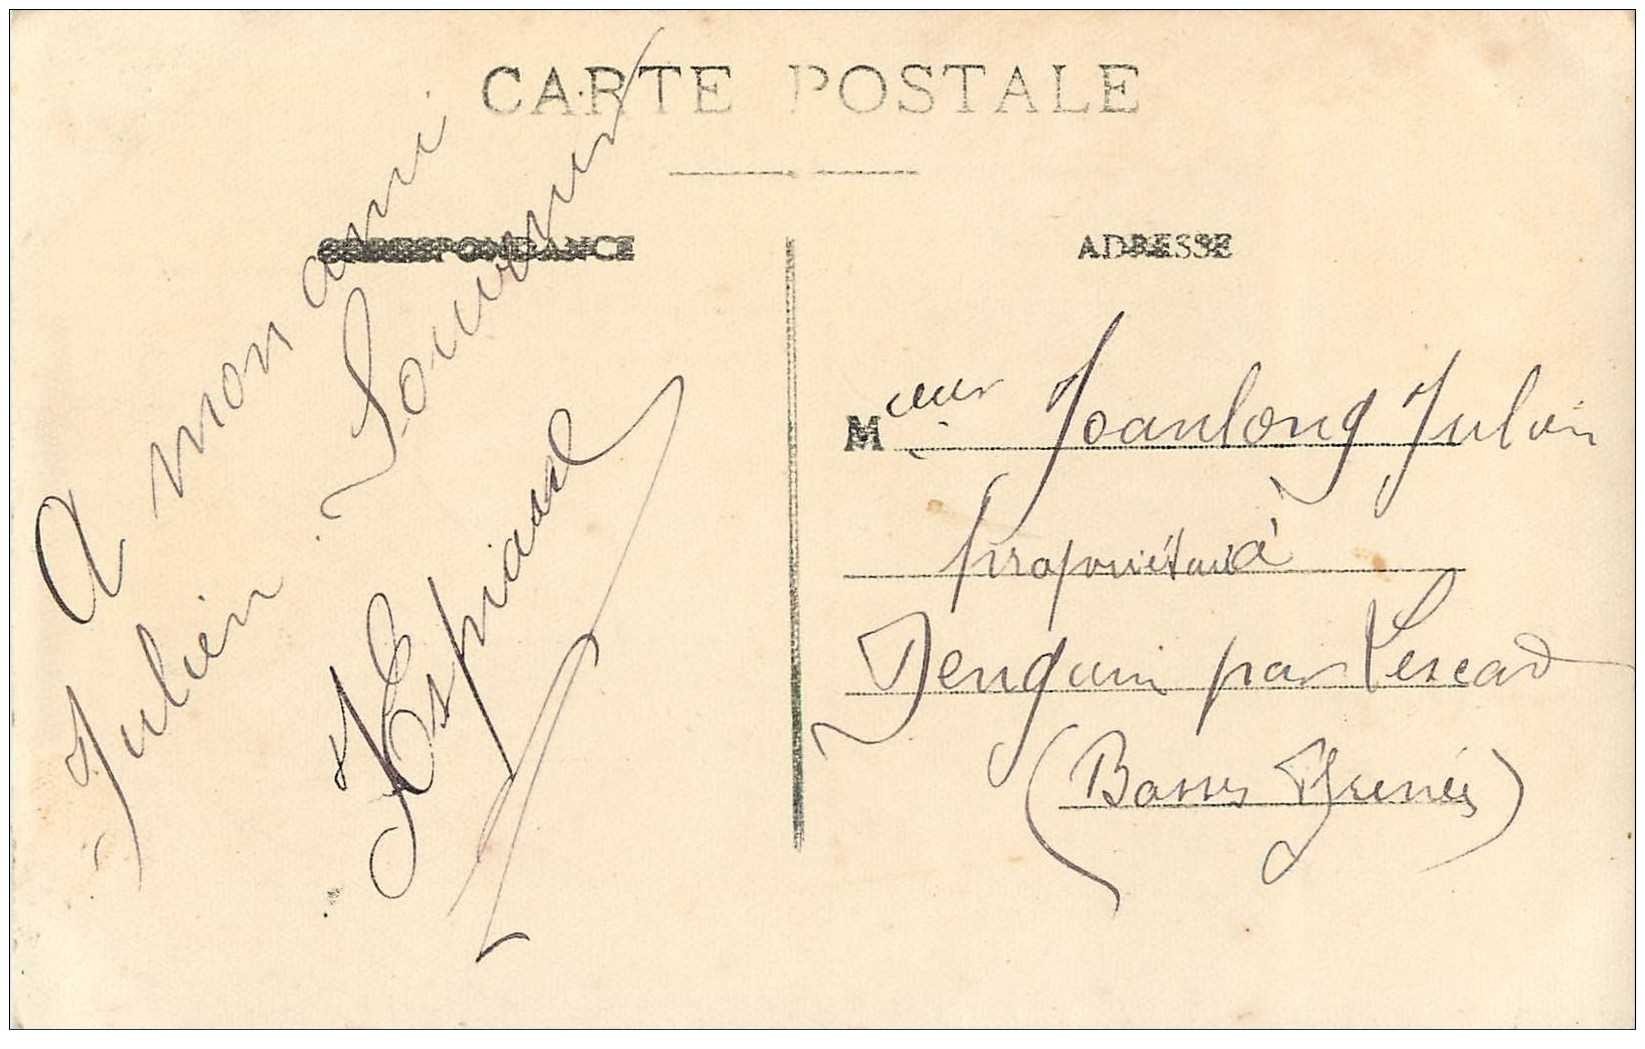 CARTE POSTALE
CORRESPONDANCE
A mon ami
Julien Souvenir
JEspiaud
ADRESSE
Mieur Joanlong Julien
propriétaire à
Denguin par Lescar
(Basses Pyrenées)